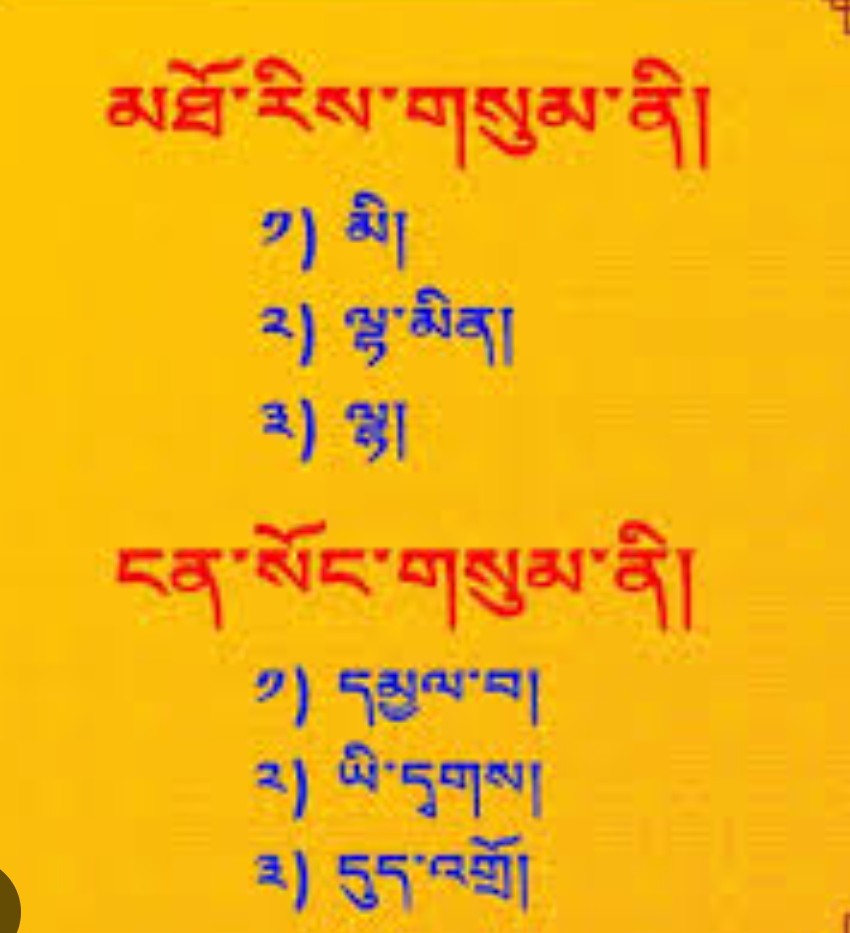 མཐོ་རིས་གསུམ་ནི།
༡) མི།
༢) ལྷ་མིན།
༣) ལྷ།
ངན་སོང་གསུམ་ནི།
༡) དམྱལ་བ།
༢) ཡི་དྭགས།
༣) དུད་འགྲོ།